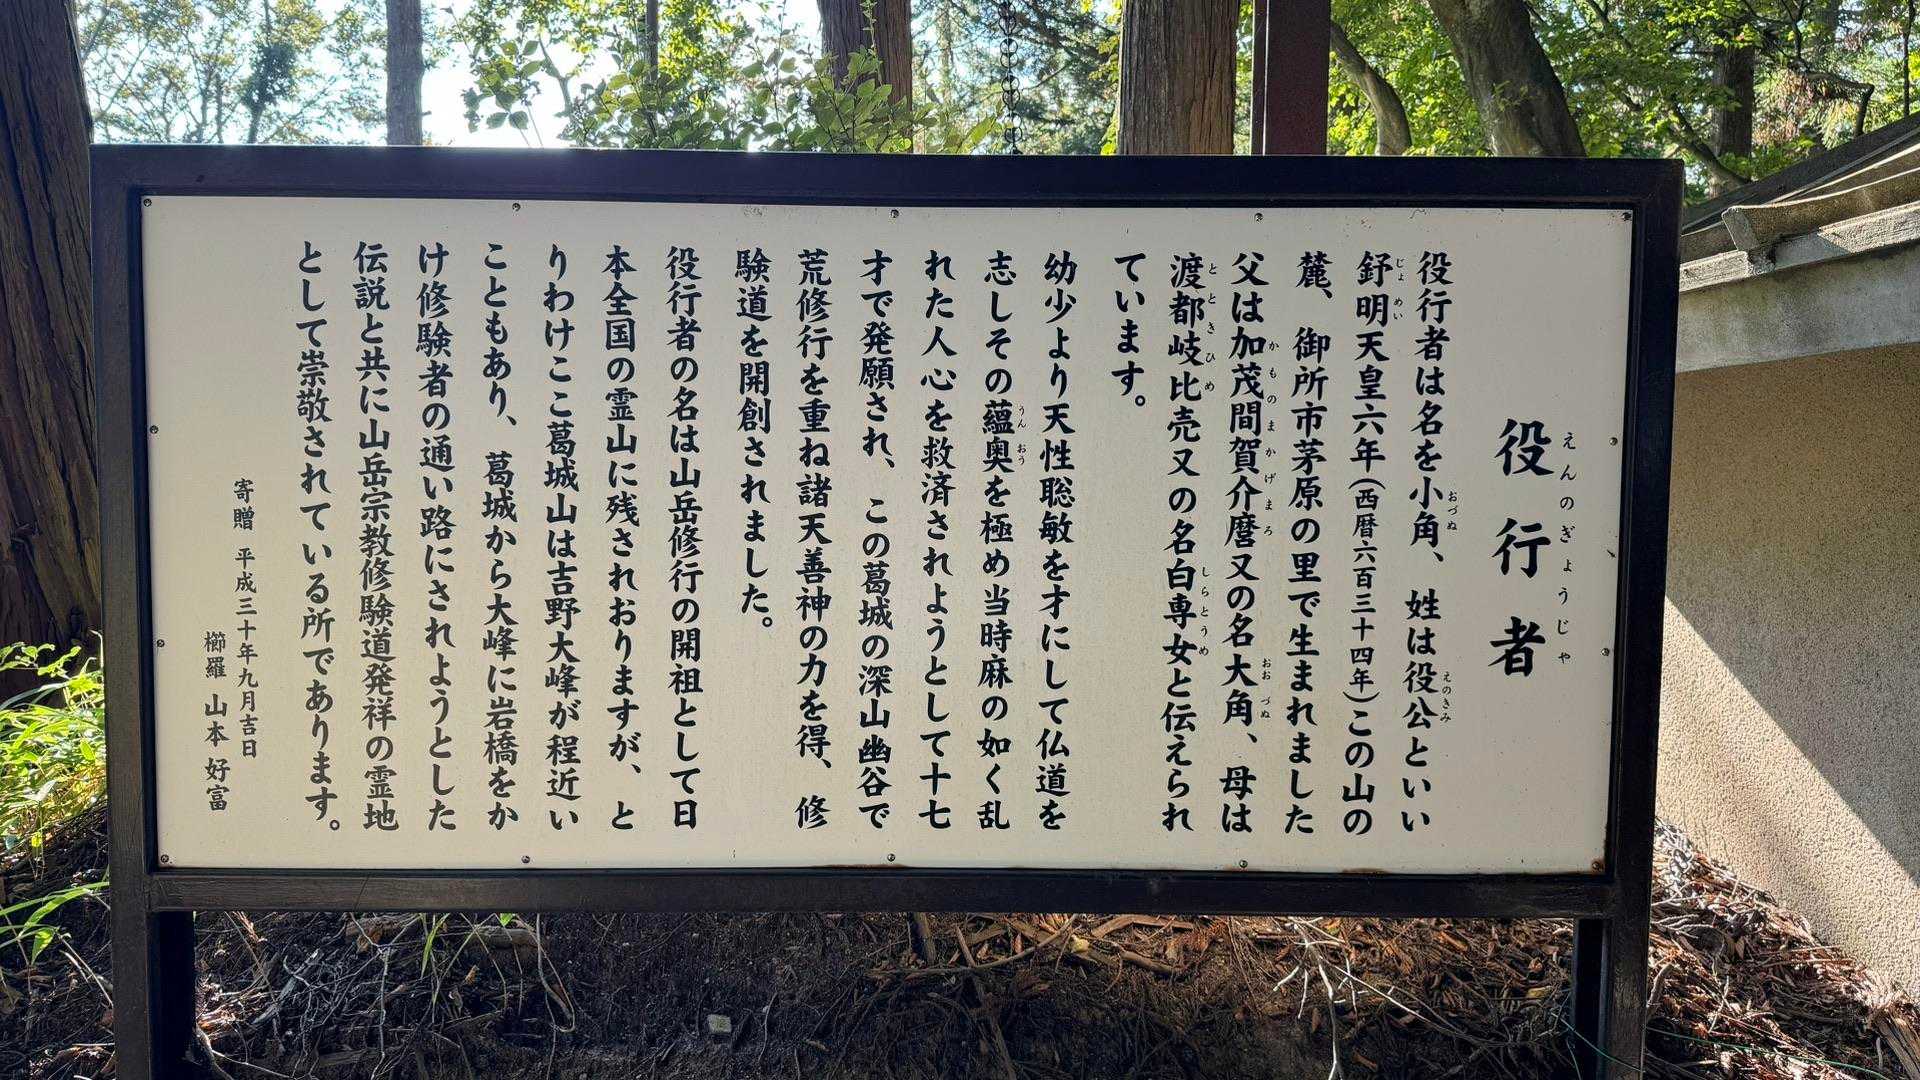 役行者
えんのぎょうじゃ
役行者は名を小角、姓は役公といい
おづぬ
えのきみ
舒明天皇六年（西暦六百三十四年）この山の
じょめい
麓、御所市茅原の里で生まれました
父は加茂間賀介麿又の名大角、母は
かものまかげまろ
おおづぬ
渡都岐比売又の名白専女と伝えられ
とときひめ
しらとうめ
ています。
幼少より天性聡敏を才にして仏道を
志しその蘊奥を極め当時麻の如く乱
うんおう
れた人心を救済されようとして十七
才で発願され、この葛城の深山幽谷で
荒修行を重ね諸天善神の力を得、修
験道を開創されました。
役行者の名は山岳修行の開祖として日
本全国の霊山に残されおりますが、と
りわけここ葛城山は吉野大峰が程近い
こともあり、葛城から大峰に岩橋をか
け修験者の通い路にされようとした
伝説と共に山岳宗教修験道発祥の霊地
として崇敬されている所であります。
寄贈 平成三十年九月吉日
櫛羅 山本 好富